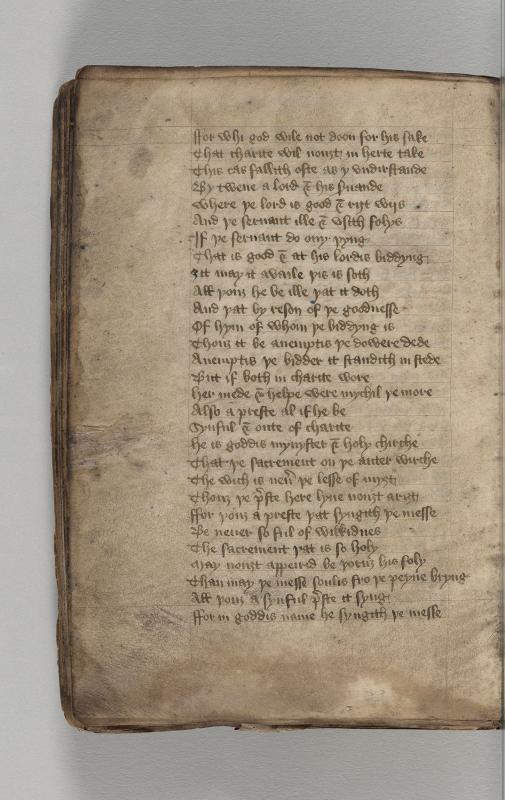 ffor whi god wile not doon for his sake
That charite wil nouȝt in herte take
This cas fallith ofte as y vndirstande
By twene a lord & his seruande
Where þe lord is good & riȝt wiis
And þe seruant ille & vsith folys
If þe seruant do ony þyng
That is good & at his lordis biddyng
ȝit may it availe þis is soth
All þouȝ he be ille þat it doth
And þat by reson of þe goodnesse
Of hym of whom þe biddyng is
Thouȝ it be anemptis þe dowere dede
Anemptis þe bidder it standith in stede
But if both in charite wore
her mede & helpe were mychil þe more
Also a preste al if he be
Synful & oute of charite
he is goddis mynyster & holy chirche
That þe sacrement on þe auter wirche
The wich is neuer þe lesse of myȝt
Thouȝ þe pr̄ste here lyue nouȝt ariȝt
ffor þouȝ a preste þat syngith þe messe
Be neuer so ful of wikkidnes
The sacrement þat is so holy
May nouȝt appeird be þoruȝ his foly
Than may þe messe soulis fro þe peyne bryng
All þouȝ a synful pr̄ste it syng
ffor in goddis name he syngith þe messe